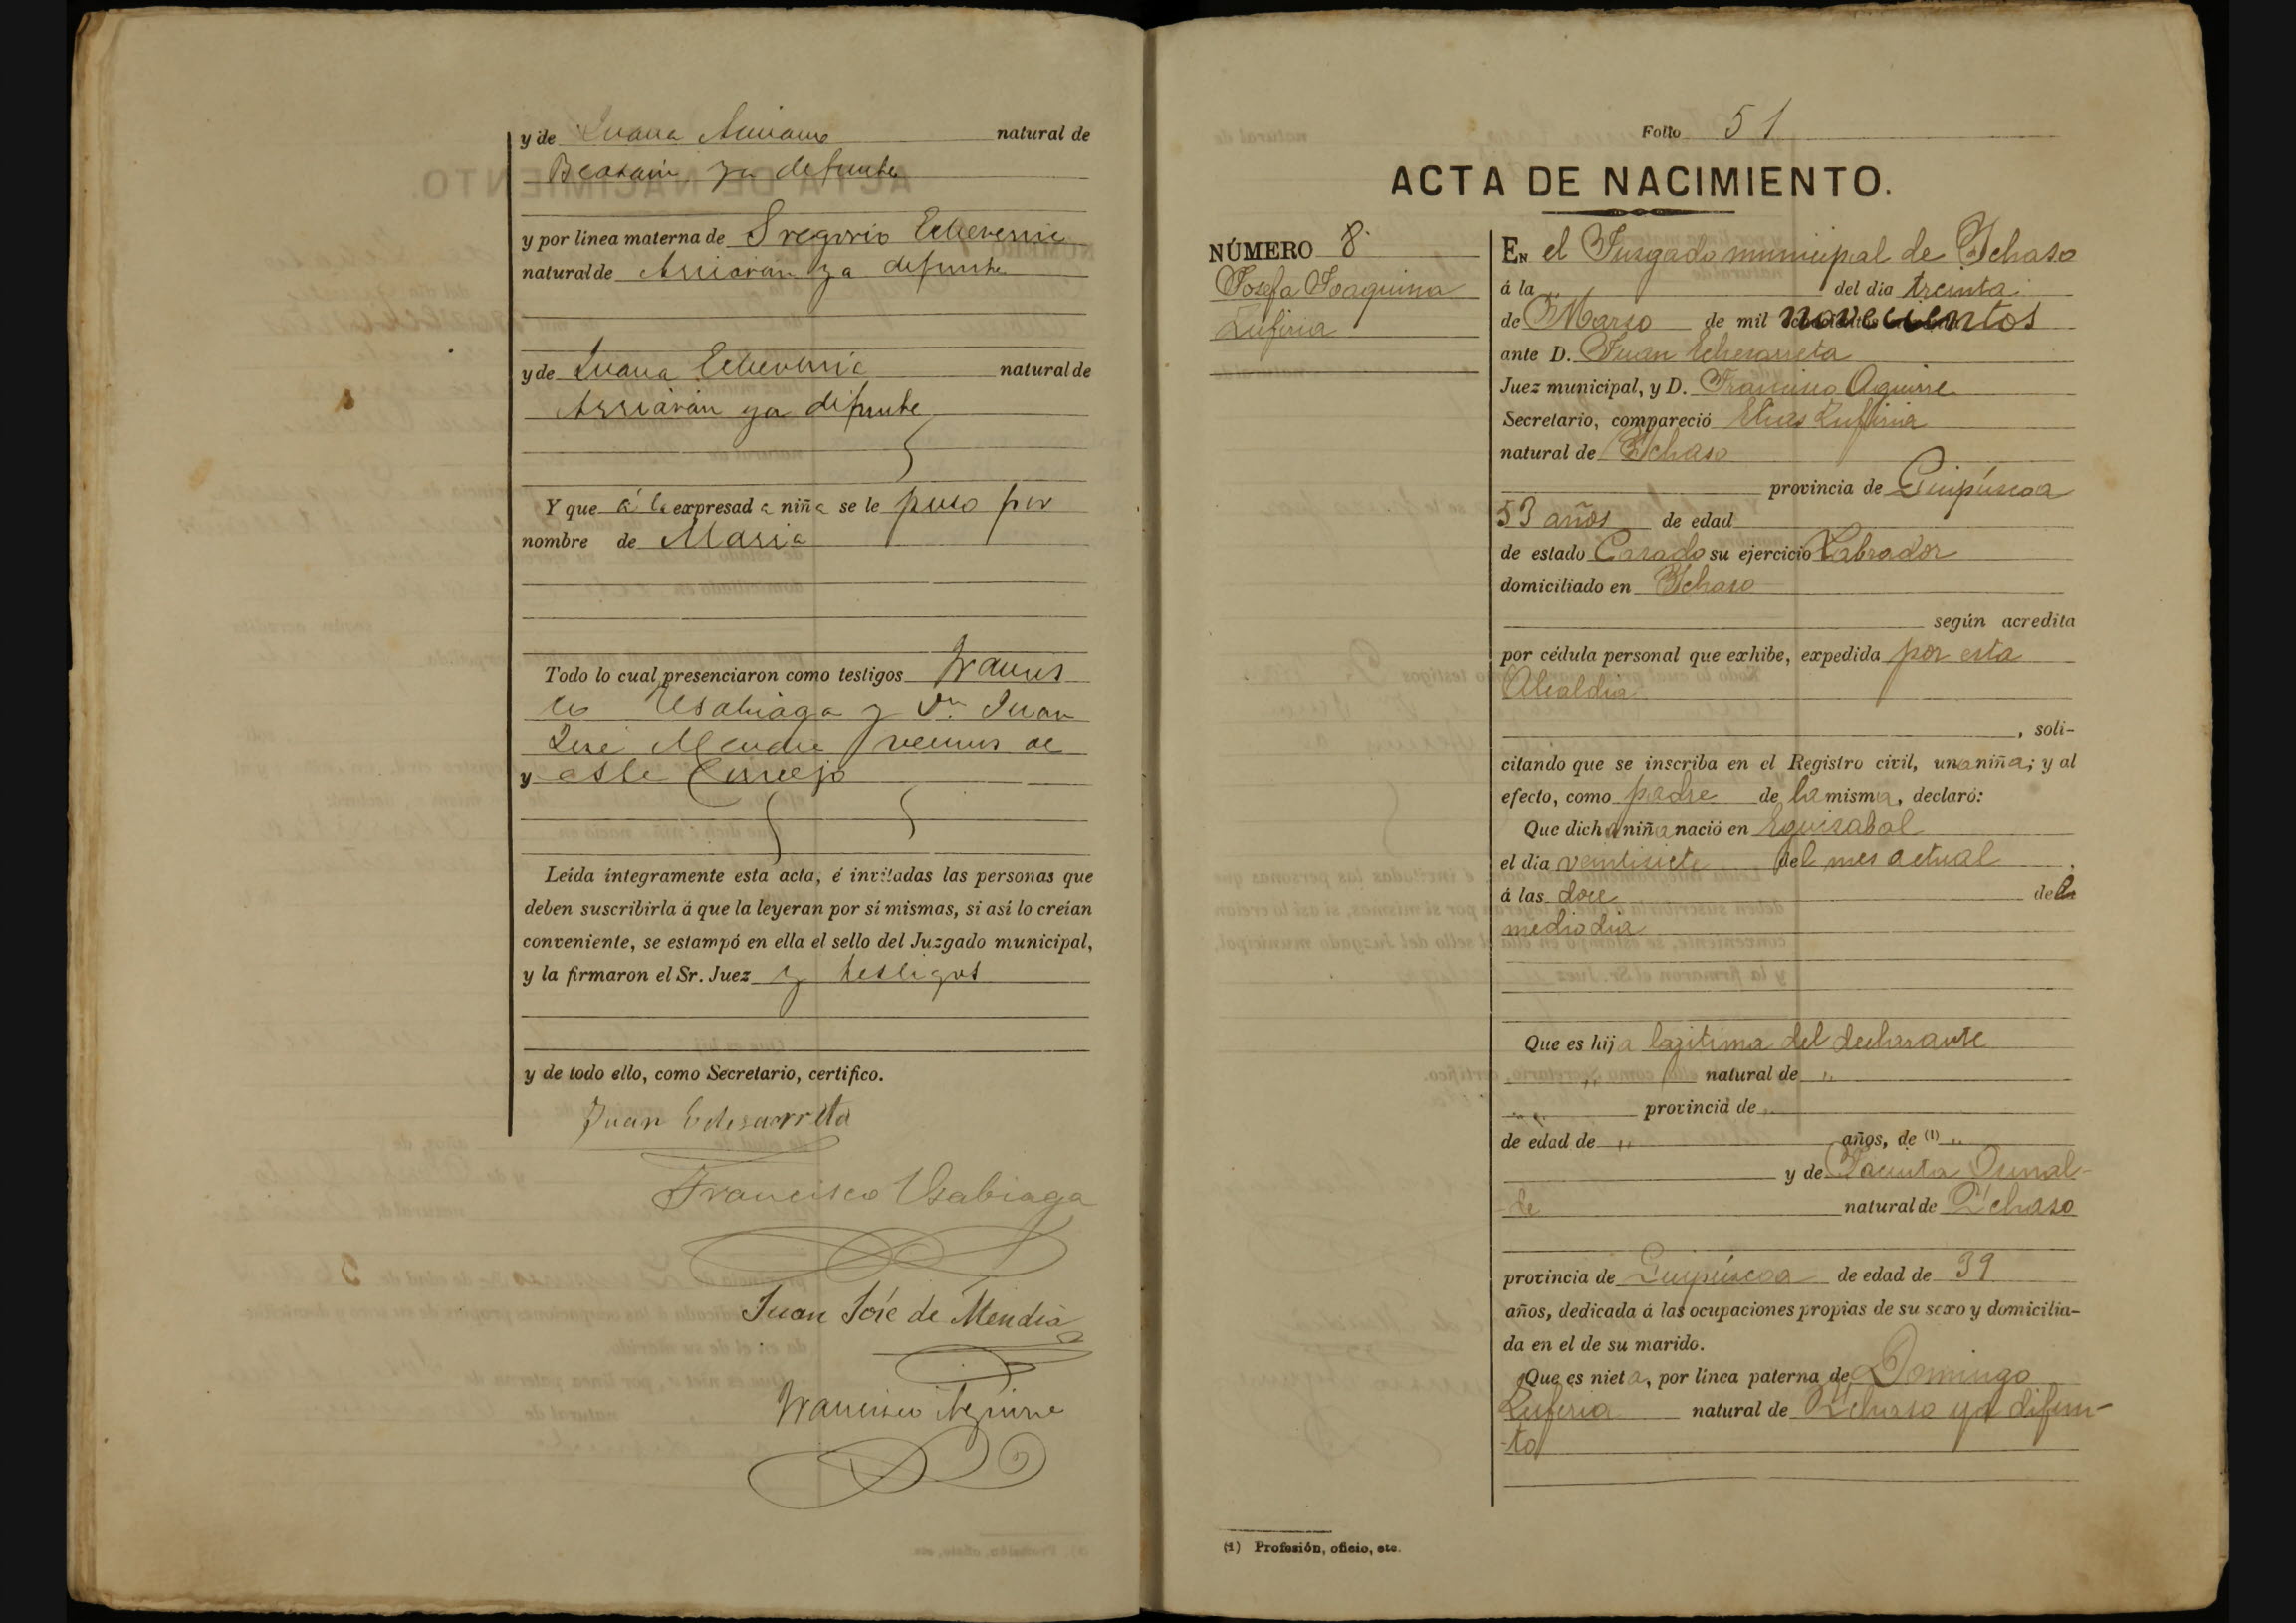 y de Juana natural de
Beasain ya defunta
y por línea materna de Gregorio Echeverria
natural de Arriarán ya defunto
y de Juana Echeverria natural de
Arriarán ya difunta
Y que á la expresada niña se le puso por
nombre de Maria
Todo lo cual presenciaron como testigos Francis
co Usabiaga y Dn. Juan
José Mendia vecinos de
y este Concejo
Leída íntegramente esta acta, é invitadas las personas que
deben suscribirla á que la leyeran por sí mismas, si así lo creían
conveniente, se estampó en ella el sello del Juzgado municipal,
y la firmaron el Sr. Juez y testigos
y de todo ello, como Secretario, certifico.
Juan Echezarreta
Francisco Usabiaga
Juan José de Mendia
Francisco Aguirre
Folio 51
ACTA DE NACIMIENTO.
NÚMERO 8.
Josefa Joaquina
Zufiria
EN el Jusgado municipal de Ychaso
á la " del dia treinta
de Marso de mil novecientos
ante D. Juan Echezarreta
Juez municipal, y D. Francisco Aguirre
Secretario, compareció Zufiria
natural de Ychaso
provincia de Guipúscoa
53 años de edad
de estado Casado su ejercicio Labrador
domiciliado en Ychaso
según acredita
por cédula personal que exhibe, expedida por esta
Alcaldia
, soli-
citando que se inscriba en el Registro civil, una niña; y al
efecto, como padre de la misma, declaró:
Que dicha niña nació en Eguisabal
el dia ventisiete del mes actual
á las doce del
medio dia
Que es hija lagitima del declarante
" natural de "
" provincia de "
de edad de " años, de (1) "
y de Jacinta Osinal-
-de natural de Ychaso
provincia de Guipúscoa de edad de 39
años, dedicada á las ocupaciones propias de su sexo y domicilia-
da en el de su marido.
Que es nieta, por línea paterna de Domingo
Zufiria natural de Ychaso ya difun-
-to
(1) Profesión, oficio, etc.